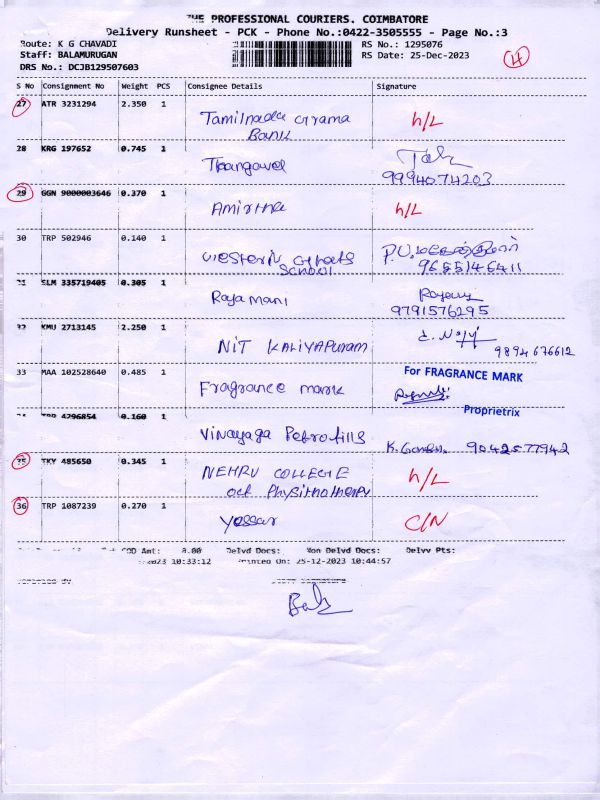 THE PROFESSIONAL COURIERS. COIMBATORE
Delivery Runsheet - PCK - Phone No.:0422-3505555 - Page No.:3
Route: K G CHAVADI RS No.: 1295076
Staff: BALAMURUGAN RS Date: 25-Dec-2023
DRS No.: DCJB129507603
4
S No Consignment No Weight PCS Consignee Details Signature
27 ATR 3231294 2.350 1
Tamilnadu Grama h/L
Bank
28 KRG 197652 0.745 1
Thangavel
9994074203
29 GGN 9000003646 0.370 1
Amirtha h/L
30 TRP 502946 0.140 1
Western Ghats P.U.
School 9655146411
31 SLM 335719405 0.305 1
Rajamani
9791576295
32 KMU 2713145 2.250 1
NIT KALIYAPURAM 9894676612
33 MAA 102528640 0.485 1 For FRAGRANCE MARK
Fragrance mark
Proprietrix
TRP 4296854 0.160 1
Vinayaga Petrofills
9042577942
35 TKY 485650 0.345 1
NEHRU COLLEGE h/L
36 TRP 1087239 0.270 1
Yessar C/N
COD Amt: 0.00 Delvd Docs: Non Delvd Docs: Delvy Pts:
2023 10:33:12 Printed On: 25-12-2023 10:44:57
Verified By Staff Signature